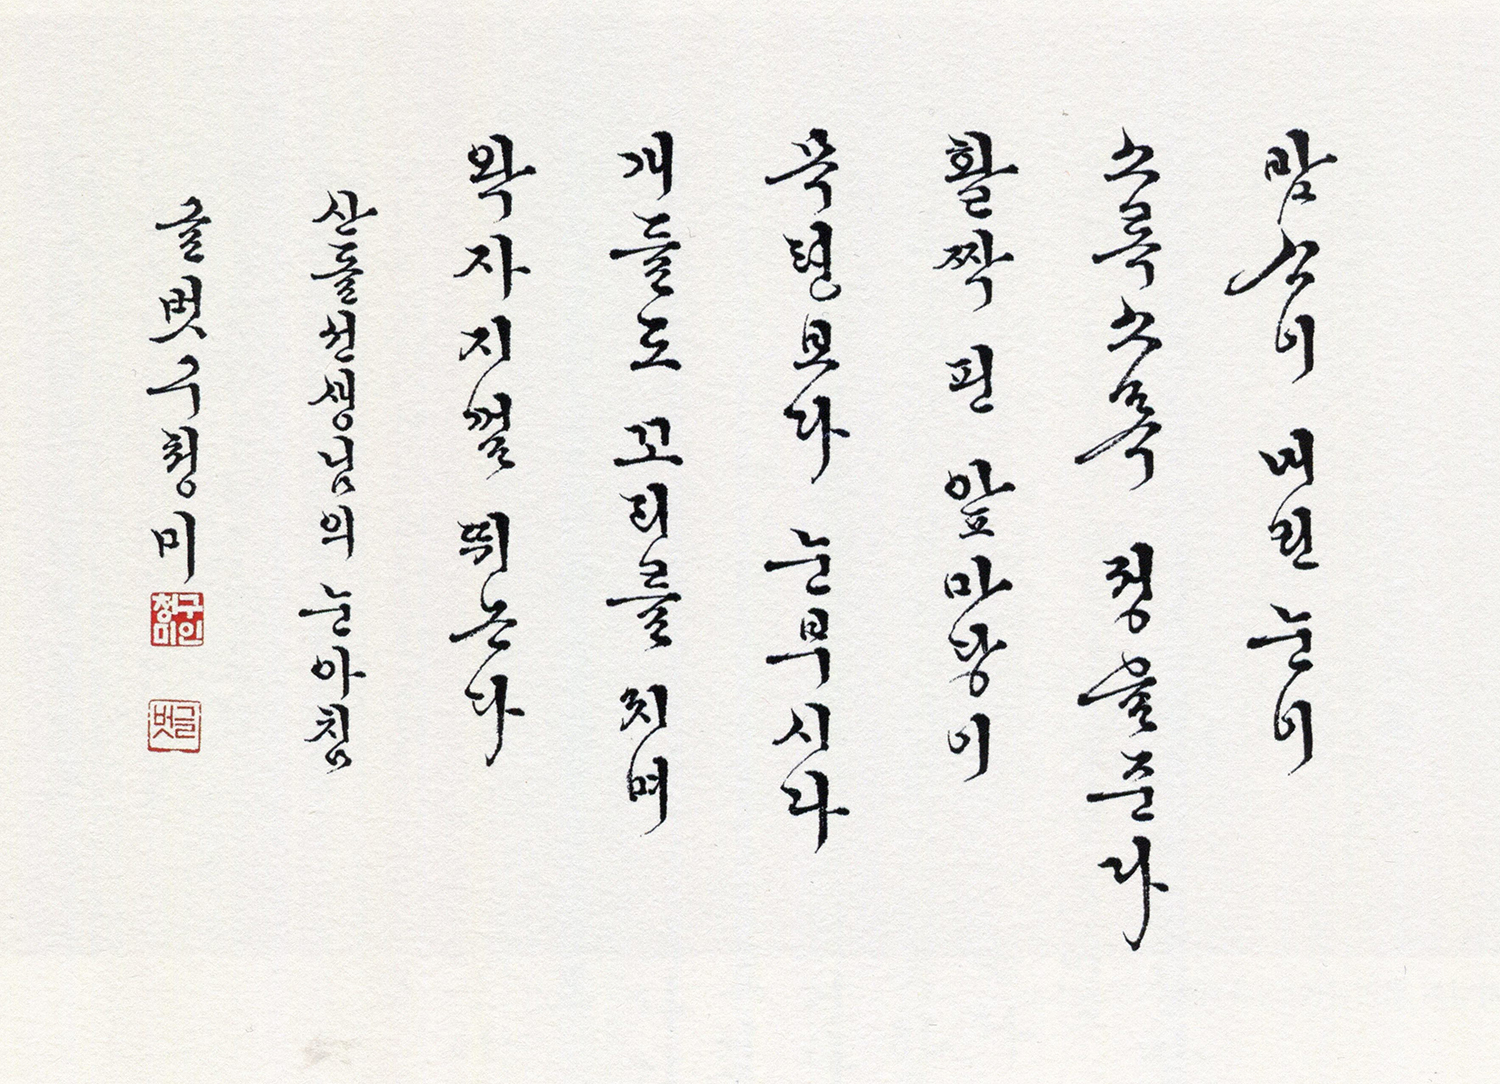 밤사이 내린 눈이
소록소록 정을준다
활짝 핀 앞마당이
목련보다 눈부시다
개들도 꼬리를 치며
왁자지껄 뛰논다
산들선생님의 눈아침
글벗 구청미
구청미인
글벗